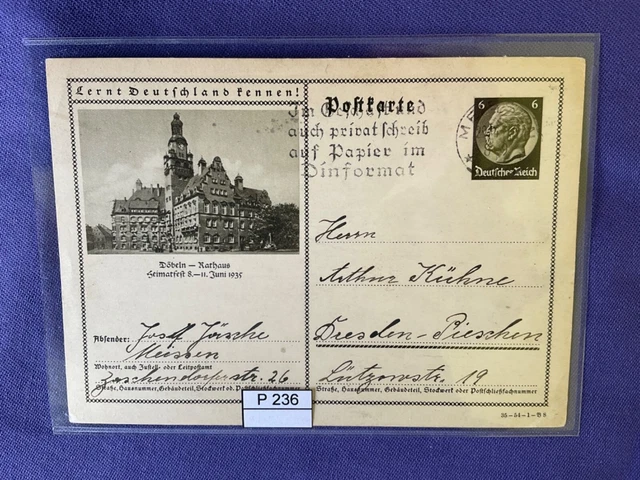 Lernt Deutschland kennen!
Döbeln — Rathaus
Heimatfest 8.–11. Juni 1935
Absender: Josef Jäsche
Meissen
Wohnort, auch Zustell- oder Leitpostamt
Zaschendorferstr. 26
Straße, Hausnummer, Gebäudeteil, Stockwerk od. Postschließfachnummer
P 236
Postkarte
Im Geschäft und
auch privat schreib
auf Papier im
Dinformat
ME
6 6
Deutsches Reich
Herrn
Arthur Kühne
Dresden-Pieschen
Lützowstr. 19
Straße, Hausnummer, Gebäudeteil, Stockwerk oder Postschließfachnummer
35–54–1–B8